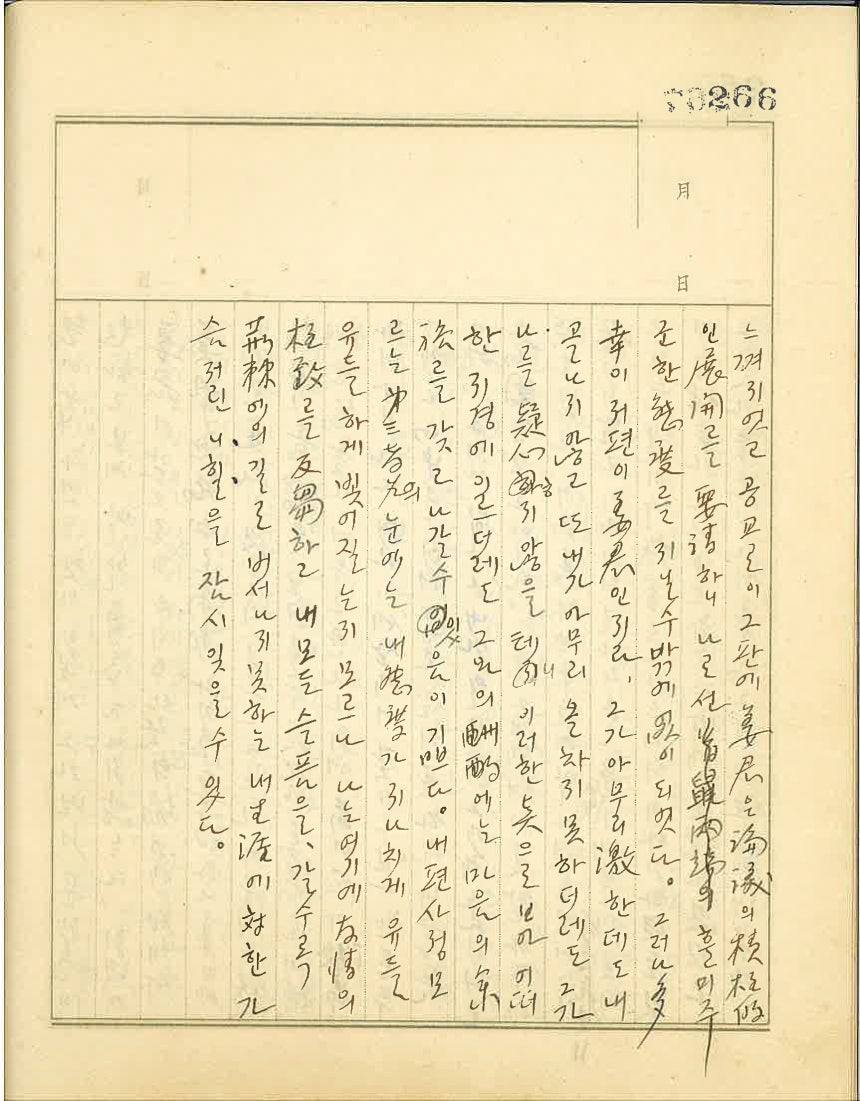 266
月
日
느껴지엇고 공교로이 그 판에 姜君은 論議의 積極的
인 展開를 要請하니 나로선 首鼠兩端의 흘미주
군한 態度를 지닐수밖에 없이 되엇다。그러나 多
幸이 저편이 姜君인지라、그가 아무리 激한데도 내
골나지 않고 또 내가 아무리 본 차리지 못하더레도 그가
나를 疑心하지 않을 테니 이러한 뜻으로 보아 어떠
한 지경에 일으더레도 그와의 酬酌에는 마음의 余
裕를 갖고 나갈수 있음이 기쁘다。내 편 사정 모
르는 第三者의 눈에는 내 態度가 지나치게 유들
유들하게 빛어질는지 모르나 나는 여기에 友情의
極致를 反芻하고 내 모든 슬픔을、갈수록
荊棘에의 길로 버서나지 못하는 내 生涯에 対한 가
슴저린 니힐을 잠시 잊을 수 있다。